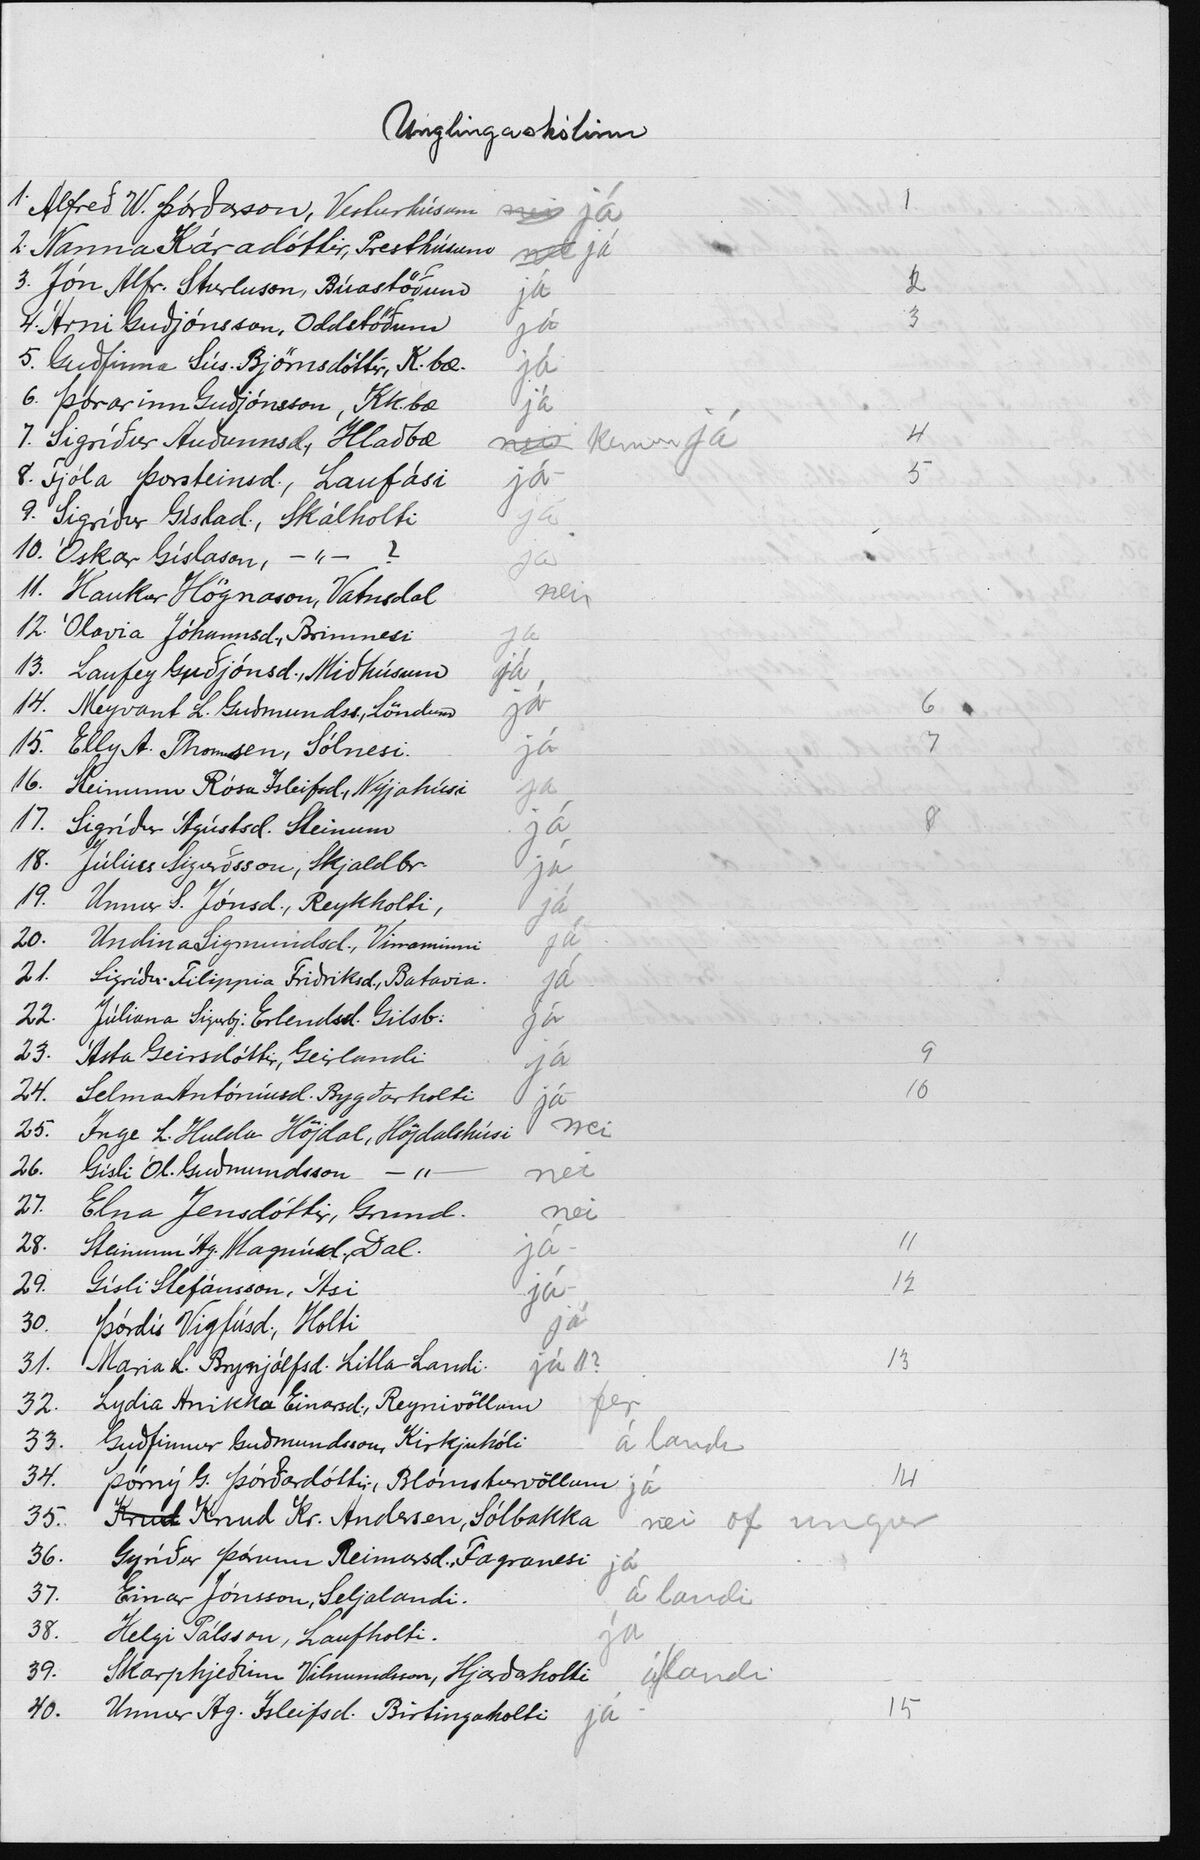 Unglingaskólinn
1. Alfreð W. Þórðarson, Vesturhúsum nei já 1
2. Nanna Káradóttir, Presthúsum nei já
3. Jón Alfr. Sturluson, Búastöðum já 2
4. Árni Guðjónsson, Oddstöðum já 3
5. Guðfinna Sús. Björnsdóttir, K.bæ. já
6. Þórarinn Guðjónsson, Kk.bæ já
7. Sigríður Auðunnsd, Hlaðbæ nei kemur já 4
8. Fjóla Þorsteinsd., Laufási já 5
9. Sigríður Gíslad., Skálholti já
10. Óskar Gíslason, – " – ? já
11. Haukur Högnason, Vatnsdal nei
12. Ólavia Jóhannsd., Brimnesi já
13. Laufey Guðjónsd., Miðhúsum já
14. Meyvant L. Guðmundss., Löndum já 6
15. Elly A. Thomsen, Sólnesi. já 7
16. Steinunn Rósa Ísleifsd., Nýjahúsi já
17. Sigríður Ágústsd. Steinum já 8
18. Júlíus Sigurðsson, Skjaldbr. já
19. Unnur S. Jónsd., Reykholti, já
20. Undína Sigmundsd., Vinaminni já
21. Sigríður Filippia Friðriksd., Batavia. já
22. Júlíana Sigurbj. Erlendsd. Gilsb. já
23. Ásta Geirsdóttir, Geirlandi já 9
24. Selma Antóníusd. Byggðarholti já 10
25. Inge L. Hulda Höjdal, Höjdalshúsi nei
26. Gísli Ól. Guðmundsson – " – nei
27. Elna Jensdóttir, Grund. nei
28. Steinunn Ág. Magnúsd., Dal. já - 11
29. Gísli Stefánsson, Ási já - 12
30. Þórdís Vigfúsd., Holti já
31. María L. Brynjólfsd. Litla-Landi. já 13
32. Lydia Anikka Einarsd., Reynivöllum fer
33. Guðfinnur Guðmundsson, Kirkjuhóli á landi
34. Þórný G. Þórðardóttir, Blómsturvöllum já 14
35. Knud Knud Kr. Andersen, Sólbakka nei of ungur
36. Gyríður Þórunn Reimarsd., Fagranesi já
37. Einar Jónsson, Seljalandi. á landi
38. Helgi Pálsson, Laufholti. já
39. Skarphjeðinn Vilmundsson, Hjarðaholti á landi
40. Unnur Ág. Ísleifsd. Birtingaholti já - 15